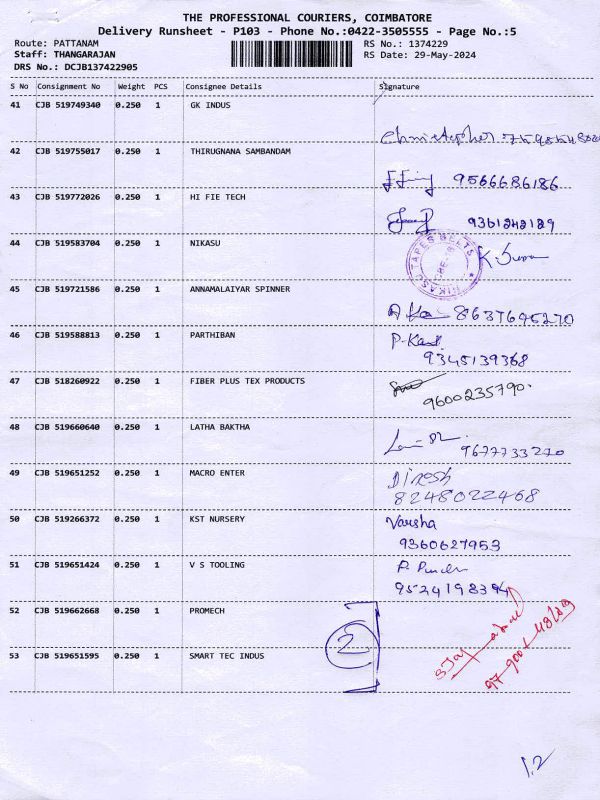 THE PROFESSIONAL COURIERS, COIMBATORE
Delivery Runsheet - P103 - Phone No.:0422-3505555 - Page No.:5
Route: PATTANAM RS No.: 1374229
Staff: THANGARAJAN RS Date: 29-May-2024
DRS No.: DCJB137422905
S No Consignment No Weight PCS Consignee Details Signature
41 CJB 519749340 0.250 1 GK INDUS
Christopher
42 CJB 519755017 0.250 1 THIRUGNANA SAMBANDAM
9566686186
43 CJB 519772026 0.250 1 HI FIE TECH
9361242129
44 CJB 519583704 0.250 1 NIKASU
NIKASU TAPES BELTS
45 CJB 519721586 0.250 1 ANNAMALAIYAR SPINNER
8637695270
46 CJB 519588813 0.250 1 PARTHIBAN
9345139368
47 CJB 518260922 0.250 1 FIBER PLUS TEX PRODUCTS
9600235790.
48 CJB 519660640 0.250 1 LATHA BAKTHA
9677733270
49 CJB 519651252 0.250 1 MACRO ENTER
Dinesh
8248022468
50 CJB 519266372 0.250 1 KST NURSERY
Varsha
9360627953
51 CJB 519651424 0.250 1 V S TOOLING
9524198394
52 CJB 519662668 0.250 1 PROMECH
2
53 CJB 519651595 0.250 1 SMART TEC INDUS